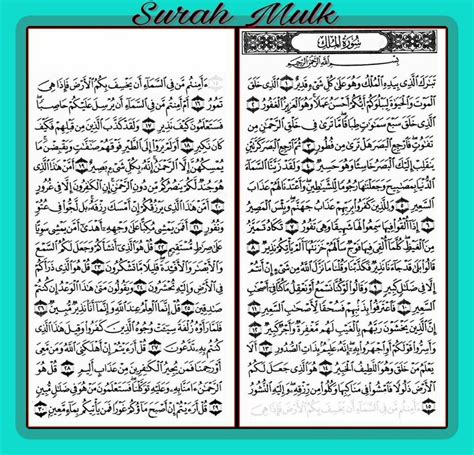 Surah Mulk
سُورَةُ المُلْكِ
بِسْمِ اللَّهِ الرَّحْمَٰنِ الرَّحِيمِ
تَبَٰرَكَ ٱلَّذِي بِيَدِهِ ٱلْمُلْكُ وَهُوَ عَلَىٰ كُلِّ شَيْءٍ قَدِيرٌ ١ ٱلَّذِي خَلَقَ
ٱلْمَوْتَ وَٱلْحَيَوٰةَ لِيَبْلُوَكُمْ أَيُّكُمْ أَحْسَنُ عَمَلًا وَهُوَ ٱلْعَزِيزُ ٱلْغَفُورُ ٢
ٱلَّذِي خَلَقَ سَبْعَ سَمَٰوَٰتٍ طِبَاقًا مَّا تَرَىٰ فِي خَلْقِ ٱلرَّحْمَٰنِ مِن
تَفَٰوُتٍ فَٱرْجِعِ ٱلْبَصَرَ هَلْ تَرَىٰ مِن فُطُورٍ ٣ ثُمَّ ٱرْجِعِ ٱلْبَصَرَ كَرَّتَيْنِ
يَنقَلِبْ إِلَيْكَ ٱلْبَصَرُ خَاسِئًا وَهُوَ حَسِيرٌ ٤ وَلَقَدْ زَيَّنَّا ٱلسَّمَآءَ
ٱلدُّنْيَا بِمَصَٰبِيحَ وَجَعَلْنَٰهَا رُجُومًا لِّلشَّيَٰطِينِ وَأَعْتَدْنَا لَهُمْ عَذَابَ
ٱلسَّعِيرِ ٥ وَلِلَّذِينَ كَفَرُوا۟ بِرَبِّهِمْ عَذَابُ جَهَنَّمَ وَبِئْسَ ٱلْمَصِيرُ
٦ إِذَآ أُلْقُوا۟ فِيهَا سَمِعُوا۟ لَهَا شَهِيقًا وَهِيَ تَفُورُ ٧ تَكَادُ تَمَيَّزُ
مِنَ ٱلْغَيْظِ كُلَّمَآ أُلْقِيَ فِيهَا فَوْجٌ سَأَلَهُمْ خَزَنَتُهَآ أَلَمْ يَأْتِكُمْ نَذِيرٌ ٨
قَالُوا۟ بَلَىٰ قَدْ جَآءَنَا نَذِيرٌ فَكَذَّبْنَا وَقُلْنَا مَا نَزَّلَ ٱللَّهُ مِن شَيْءٍ إِنْ أَنتُمْ
إِلَّا فِي ضَلَٰلٍ كَبِيرٍ ٩ وَقَالُوا۟ لَوْ كُنَّا نَسْمَعُ أَوْ نَعْقِلُ مَا كُنَّا فِيٓ أَصْحَٰبِ
ٱلسَّعِيرِ ١٠ فَٱعْتَرَفُوا۟ بِذَنۢبِهِمْ فَسُحْقًا لِّأَصْحَٰبِ ٱلسَّعِيرِ ١١
إِنَّ ٱلَّذِينَ يَخْشَوْنَ رَبَّهُم بِٱلْغَيْبِ لَهُم مَّغْفِرَةٌ وَأَجْرٌ كَبِيرٌ ١٢
وَأَسِرُّوا۟ قَوْلَكُمْ أَوِ ٱجْهَرُوا۟ بِهِۦٓ إِنَّهُۥ عَلِيمٌۢ بِذَاتِ ٱلصُّدُورِ ١٣ أَلَا
يَعْلَمُ مَنْ خَلَقَ وَهُوَ ٱللَّطِيفُ ٱلْخَبِيرُ ١٤ هُوَ ٱلَّذِي جَعَلَ لَكُمُ
ٱلْأَرْضَ ذَلُولًا فَٱمْشُوا۟ فِي مَنَاكِبِهَا وَكُلُوا۟ مِن رِّزْقِهِۦ وَإِلَيْهِ ٱلنُّشُورُ
١٥ ءَأَمِنتُم مَّن فِي ٱلسَّمَآءِ أَن يَخْسِفَ بِكُمُ ٱلْأَرْضَ فَإِذَا هِيَ
ءَأَمِنتُم مَّن فِي ٱلسَّمَآءِ أَن يَخْسِفَ بِكُمُ ٱلْأَرْضَ فَإِذَا هِيَ
تَمُورُ ١٦ أَمْ أَمِنتُم مَّن فِي ٱلسَّمَآءِ أَن يُرْسِلَ عَلَيْكُمْ حَاصِبًا
فَسَتَعْلَمُونَ كَيْفَ نَذِيرِ ١٧ وَلَقَدْ كَذَّبَ ٱلَّذِينَ مِن قَبْلِهِمْ فَكَيْفَ
كَانَ نَكِيرِ ١٨ أَوَلَمْ يَرَوْا۟ إِلَى ٱلطَّيْرِ فَوْقَهُمْ صَٰٓفَّٰتٍ وَيَقْبِضْنَ مَا
يُمْسِكُهُنَّ إِلَّا ٱلرَّحْمَٰنُ إِنَّهُۥ بِكُلِّ شَيْءٍۭ بَصِيرٌ ١٩ أَمَّنْ هَٰذَا ٱلَّذِي
هُوَ جُندٌ لَّكُمْ يَنصُرُكُم مِّن دُونِ ٱلرَّحْمَٰنِ إِنِ ٱلْكَٰفِرُونَ إِلَّا فِي غُرُورٍ
٢٠ أَمَّنْ هَٰذَا ٱلَّذِي يَرْزُقُكُمْ إِنْ أَمْسَكَ رِزْقَهُۥ بَل لَّجُّوا۟ فِي عُتُوٍّ
وَنُفُورٍ ٢١ أَفَمَن يَمْشِي مُكِبًّا عَلَىٰ وَجْهِهِۦٓ أَهْدَىٰٓ أَمَّن يَمْشِي سَوِيًّا
عَلَىٰ صِرَٰطٍ مُّسْتَقِيمٍ ٢٢ قُلْ هُوَ ٱلَّذِيٓ أَنشَأَكُمْ وَجَعَلَ لَكُمُ ٱلسَّمْعَ
وَٱلْأَبْصَٰرَ وَٱلْأَفْـِٔدَةَ قَلِيلًا مَّا تَشْكُرُونَ ٢٣ قُلْ هُوَ ٱلَّذِي ذَرَأَكُمْ
فِي ٱلْأَرْضِ وَإِلَيْهِ تُحْشَرُونَ ٢٤ وَيَقُولُونَ مَتَىٰ هَٰذَا ٱلْوَعْدُ إِن كُنتُمْ
صَٰدِقِينَ ٢٥ قُلْ إِنَّمَا ٱلْعِلْمُ عِندَ ٱللَّهِ وَإِنَّمَآ أَنَا۠ نَذِيرٌ مُّبِينٌ ٢٦
فَلَمَّا رَأَوْهُ زُلْفَةً سِيٓـَٔتْ وُجُوهُ ٱلَّذِينَ كَفَرُوا۟ وَقِيلَ هَٰذَا ٱلَّذِي
كُنتُم بِهِۦ تَدَّعُونَ ٢٧ قُلْ أَرَءَيْتُمْ إِنْ أَهْلَكَنِيَ ٱللَّهُ وَمَن مَّعِيَ أَوْ
رَحِمَنَا فَمَن يُجِيرُ ٱلْكَٰفِرِينَ مِنْ عَذَابٍ أَلِيمٍ ٢٨ قُلْ هُوَ
ٱلرَّحْمَٰنُ ءَامَنَّا بِهِۦ وَعَلَيْهِ تَوَكَّلْنَا فَسَتَعْلَمُونَ مَنْ هُوَ فِي ضَلَٰلٍ مُّبِينٍ
٢٩ قُلْ أَرَءَيْتُمْ إِنْ أَصْبَحَ مَآؤُكُمْ غَوْرًا فَمَن يَأْتِيكُم بِمَآءٍ مَّعِينٍۭ ٣٠